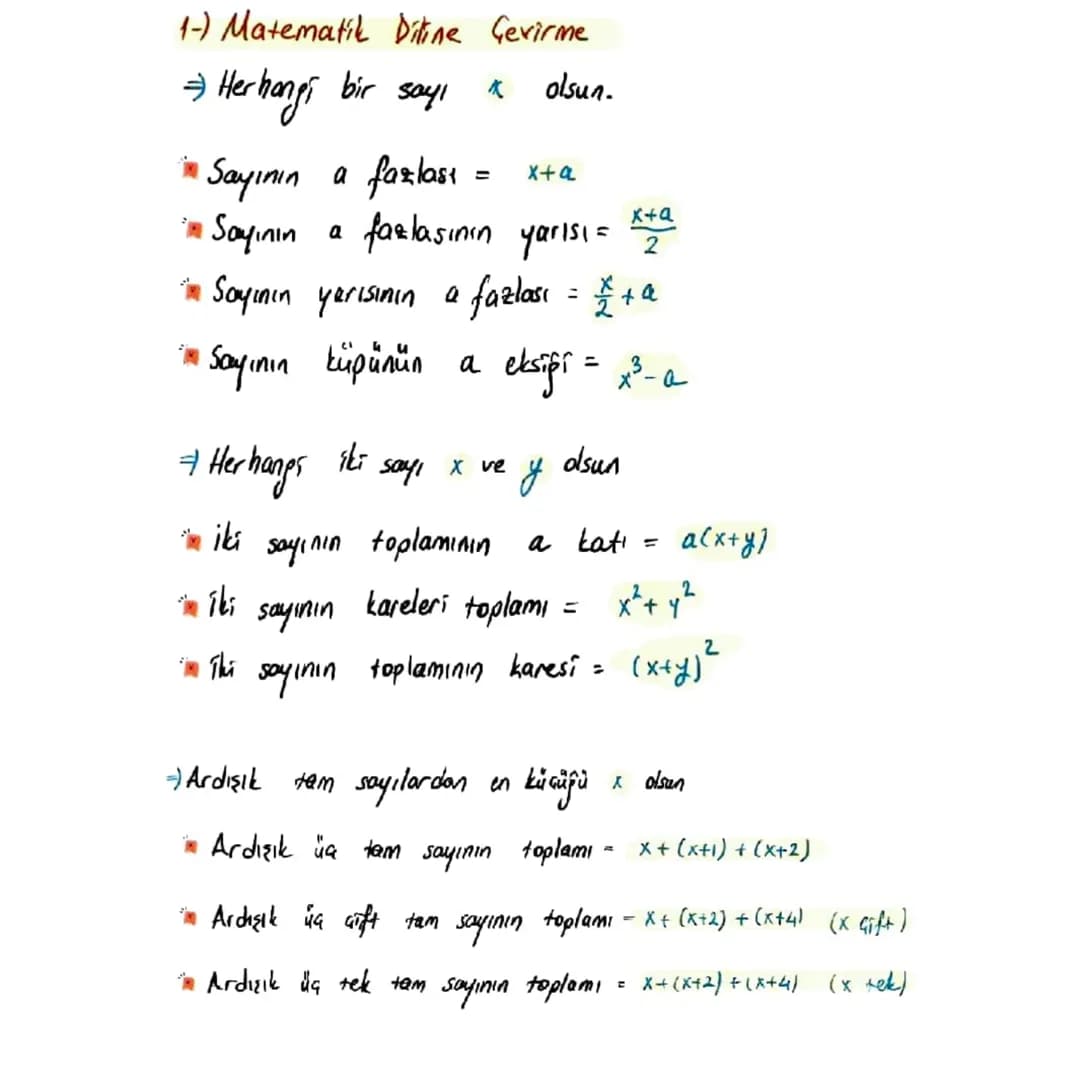 1-) Matematik Diline Çevirme
⇒ Herhangi bir sayı x olsun.
Sayının a fazlası = x+a
Sayının a fazlasının yarısı = (x+a)/2
Sayının yarısının a fazlası = x/2 + a
Sayının küpünün a eksiği = x³-a
⇒ Herhangi iki sayı x ve y olsun
iki sayının toplamının a katı = a(x+y)
iki sayının kareleri toplamı = x²+y²
iki sayının toplamının karesi = (x+y)²
⇒ Ardışık tam sayılardan en küçüğü x olsun
Ardışık üç tam sayının toplamı = x+(x+1)+(x+2)
Ardışık üç çift tam sayının toplamı = x+(x+2)+(x+4) (x çift)
Ardışık üç tek tam sayının toplamı = x+(x+2)+(x+4) (x tek)